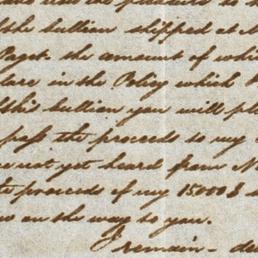 the bullion shipped at
Paget the amount of whi
lare in the Policy which
this bullion you will pl
pass the proceeds to my
not yet heard from N
proceeds of my 15000 $
on the way to you.
I remain - de